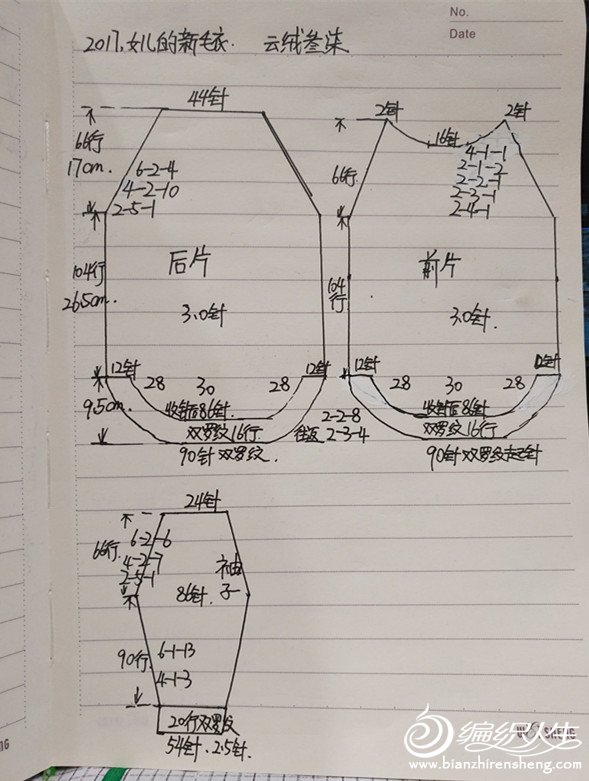 No.
Date
2017.女儿的新毛衣. 云绒叁柒
44针
66行
17cm.
6-2-4
4-2-10
2-5-1
104行
26.5cm.
后片
3.0针
12针
12针
28 30 28
9.5cm.
收针后86针.
双罗纹16行.
90针双罗纹.
往返 2-2-8
2-3-4
2针
2针
16针
66行
4-1-1
2-1-2
2-2-1
2-2-1
2-4-1
104行
前片
3.0针
12针
12针
28 30 28
收针后86针
双罗纹16行
90针双罗纹起针
24针
66行
6-2-6
4-2-7
2-5-1
袖子
86针
90行
6-1-13
4-1-3
20行双罗纹
54针.2.5针
SHENG
16
编织人生
www.bianzhirensheng.com